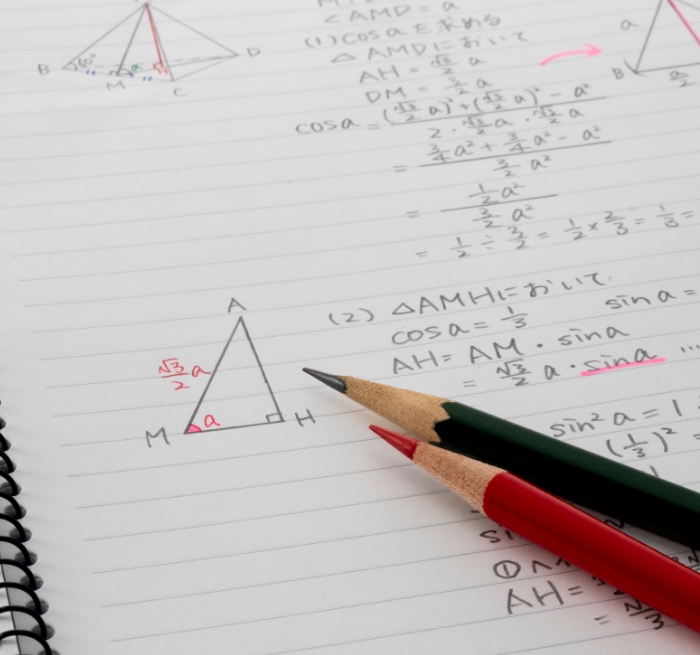 ∠AMD = a
(1) cos a を求める
△AMDにおいて
AH = √3/2 a
DM = √3/2 a
cos a = ((√3/2 a)² + (√3/2 a)² - a²) / (2・√3/2 a・√3/2 a)
= (3/4 a² + 3/4 a² - a²) / (3/2 a²)
= (1/2 a²) / (3/2 a²)
= 1/2 ÷ 3/2 = 1/2 × 2/3 = 1/3 =
B
60°
M
a
C
D
a
B
a/2
(2) △AMHにおいて
cos a = 1/3
sin a =
AH = AM・sin a
= √3/2 a・sin a ...
sin² a = 1
(1/3)² =
A
√3/2 a
M
a
H
si
①
AH =
=